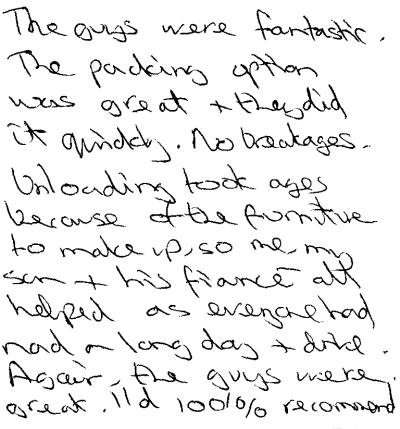 The guys were fantastic.
The packing option
was great + they did
it quickly. No breakages.
Unloading took ages
because of the furnitive
to make up, so me, my
son + his fiancé all
helped as everyone had
had a long day + drive.
Again, the guys were
great. I'd 100% recommend